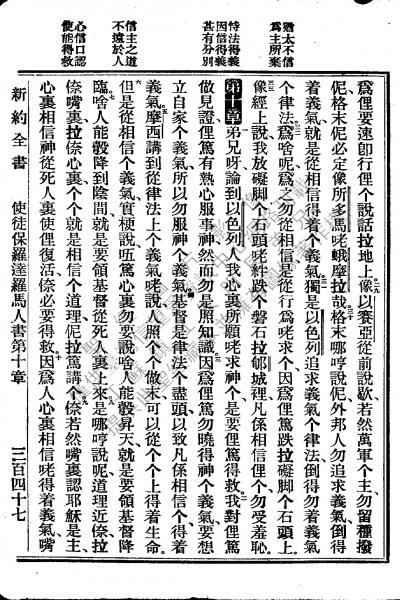 猶太不信
爲主所棄
恃法得義
因信得義
甚有分別
信主之道
不遠於人
心信口認
使能得救
爲俚要速卽行俚个說話拉地上像以賽亞從前說歇若然萬軍个主勿留種撥
伲格末伲必定像所多馬咾蛾摩拉哉格末哪哼說呢外邦人勿追求義氣倒得
着義氣就是從相信得着个義氣獨是以色列追求義氣个律法倒得勿着義氣
个律法爲啥呢爲之勿從相信是從行爲咾求个因爲俚篤跌拉礙脚个石頭上
像經上說我放礙脚个石頭咾絆跌个磐石拉郇城裡凡係相信俚个勿受羞恥
第十章弟兄呀論到以色列人我心裏所願咾求神个是要俚篤得救我對俚篤
做見證俚篤有熱心服事神然而勿是照知識因爲俚篤勿曉得神个義氣要想
立自家个義氣所以勿服神个義氣基督是律法个盡頭以致凡係相信个得着
義氣摩西講到從律法上个義氣咾說人照个个做末可以從个个上得着生命
但是從相信个義氣實梗說唔篤心裏勿要說啥人能彀昇天就是要領基督降
臨啥人能彀降到陰間就是要領基督從死人裏上來是哪哼說呢道理近倷拉
倷嘴裏拉倷心裏个个就是相信个道理伲拉篤講个倷若然嘴裏認耶穌是主
心裏相信神從死人裏使俚復活倷必要得救因爲人心裏相信咾得着義氣嘴
新約全書 使徒保羅達羅馬人書第十章 三百四十七